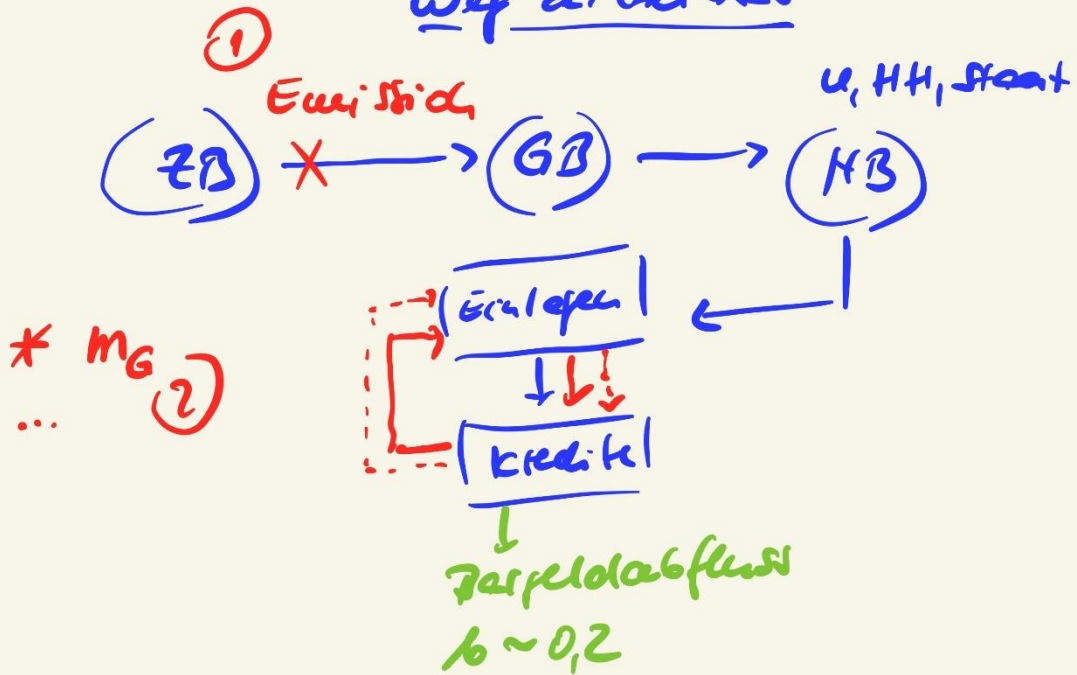 ①
Emission
U, HH, Staat
ZB
GB
NB
Einlagen
* m_G ②
...
Kredite
Bargeldabfluss
b ~ 0,2